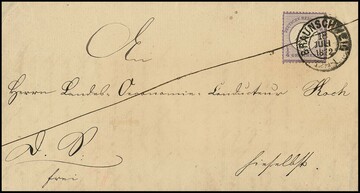 BRAUNSCHWEIG
JULI
1872
An
Herrn Landes-Oeconomie-Conducteur Koch
D. S.
frei.
hieselbst.